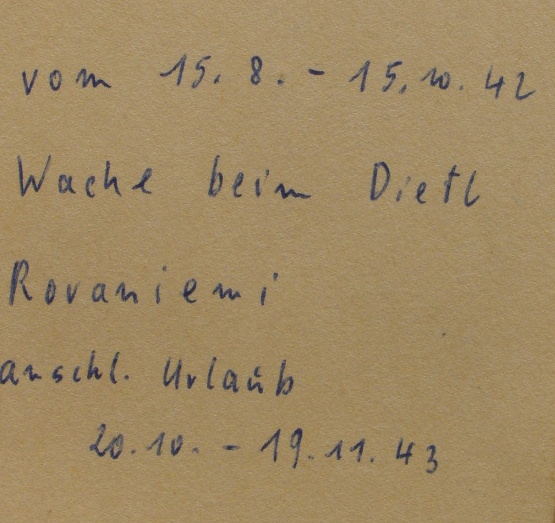 vom 15. 8. - 15. 10. 42
Wache beim Dietl
Rovaniemi
anschl. Urlaub
20.10. - 19.11. 43